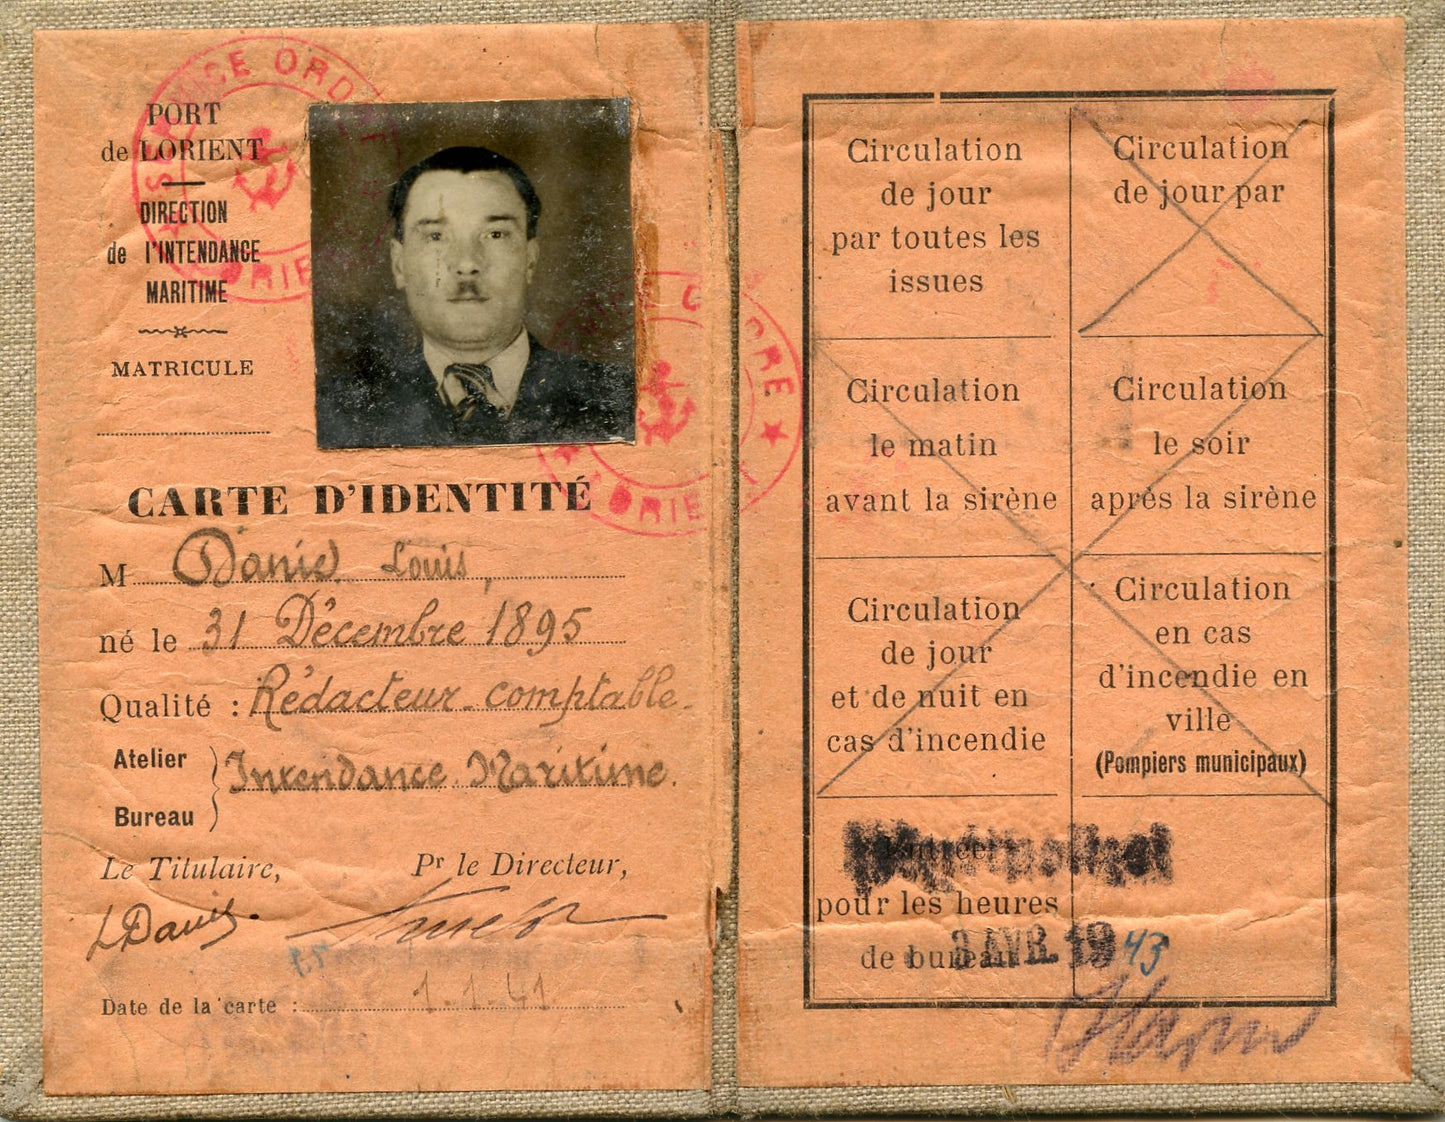 PORT
de LORIENT
DIRECTION
de l'INTENDANCE
MARITIME
MATRICULE
SERVICE ORDRE
★ LORIENT ★
ORDRE
★ LORIENT ★
CARTE D'IDENTITÉ
M Daniel Louis,
né le 31 Décembre 1895
Qualité : Rédacteur-comptable-
Atelier
Bureau
Intendance Maritime.
Le Titulaire,
Pr le Directeur,
L Daniel.
Date de la carte : 1.1.41
Circulation
de jour
par toutes les
issues
Circulation
de jour par
Circulation
le matin
avant la sirène
Circulation
le soir
après la sirène
Circulation
de jour
et de nuit en
cas d'incendie
Circulation
en cas
d'incendie en
ville
(Pompiers municipaux)
Entrée
pour les heures
de bureau
3 AVR. 1943